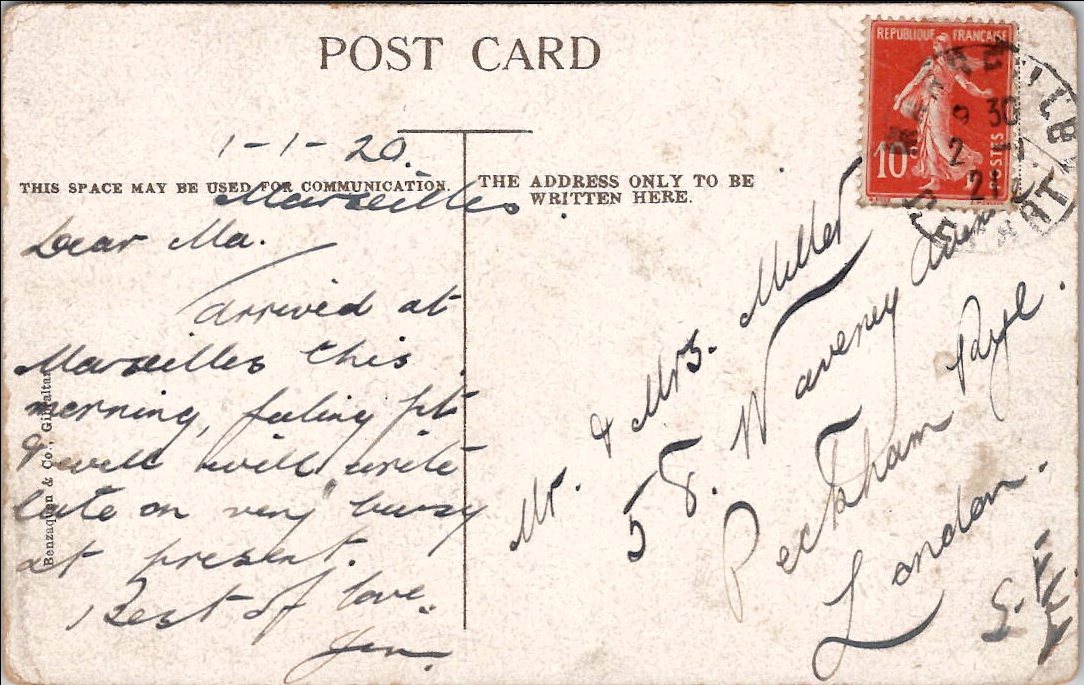 POST CARD
REPUBLIQUE FRANCAISE
10c
POSTES
MARSEILLE
DEPART
9 30
2 - 1
21
1-1-20.
THIS SPACE MAY BE USED FOR COMMUNICATION.
Marseilles
Dear Ma.
Arrived at
Marseilles this
morning, feeling fit
& well will write
late on very busy
at present.
Best of love.
Benzaquen & Co., Gibraltar
THE ADDRESS ONLY TO BE
WRITTEN HERE.
Mr. & Mrs. Miller
58. Waveney Avenue
Peckham Rye.
London.
S.E.